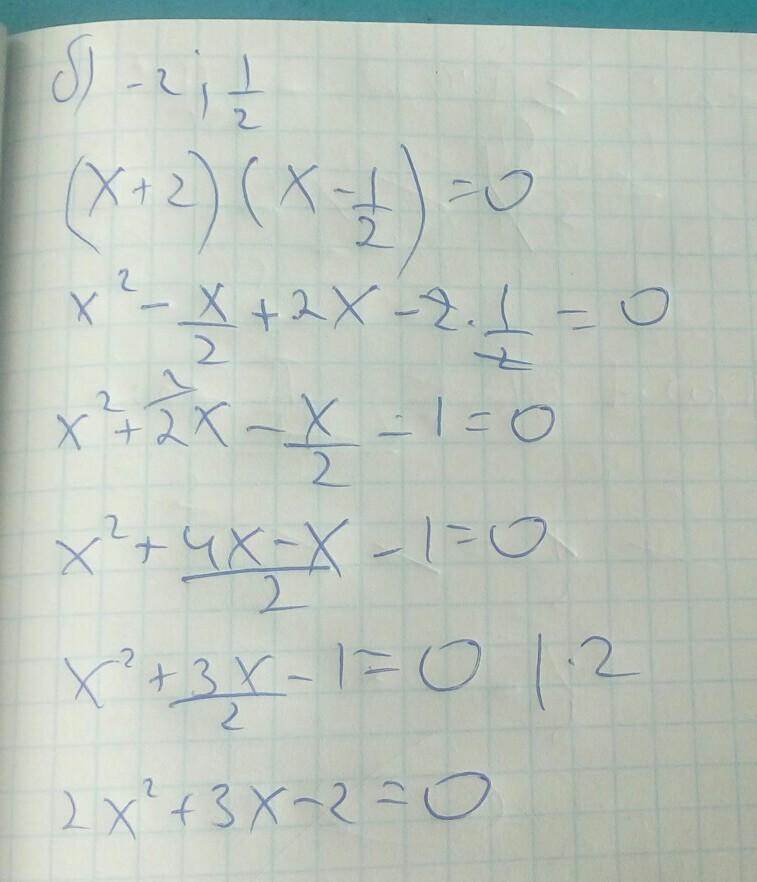 б) -2; 1/2
(x+2)(x-1/2)=0
x²-x/2+2x-2·1/2=0
x²+2x-x/2-1=0
x²+(4x-x)/2-1=0
x²+3x/2-1=0 |·2
2x²+3x-2=0